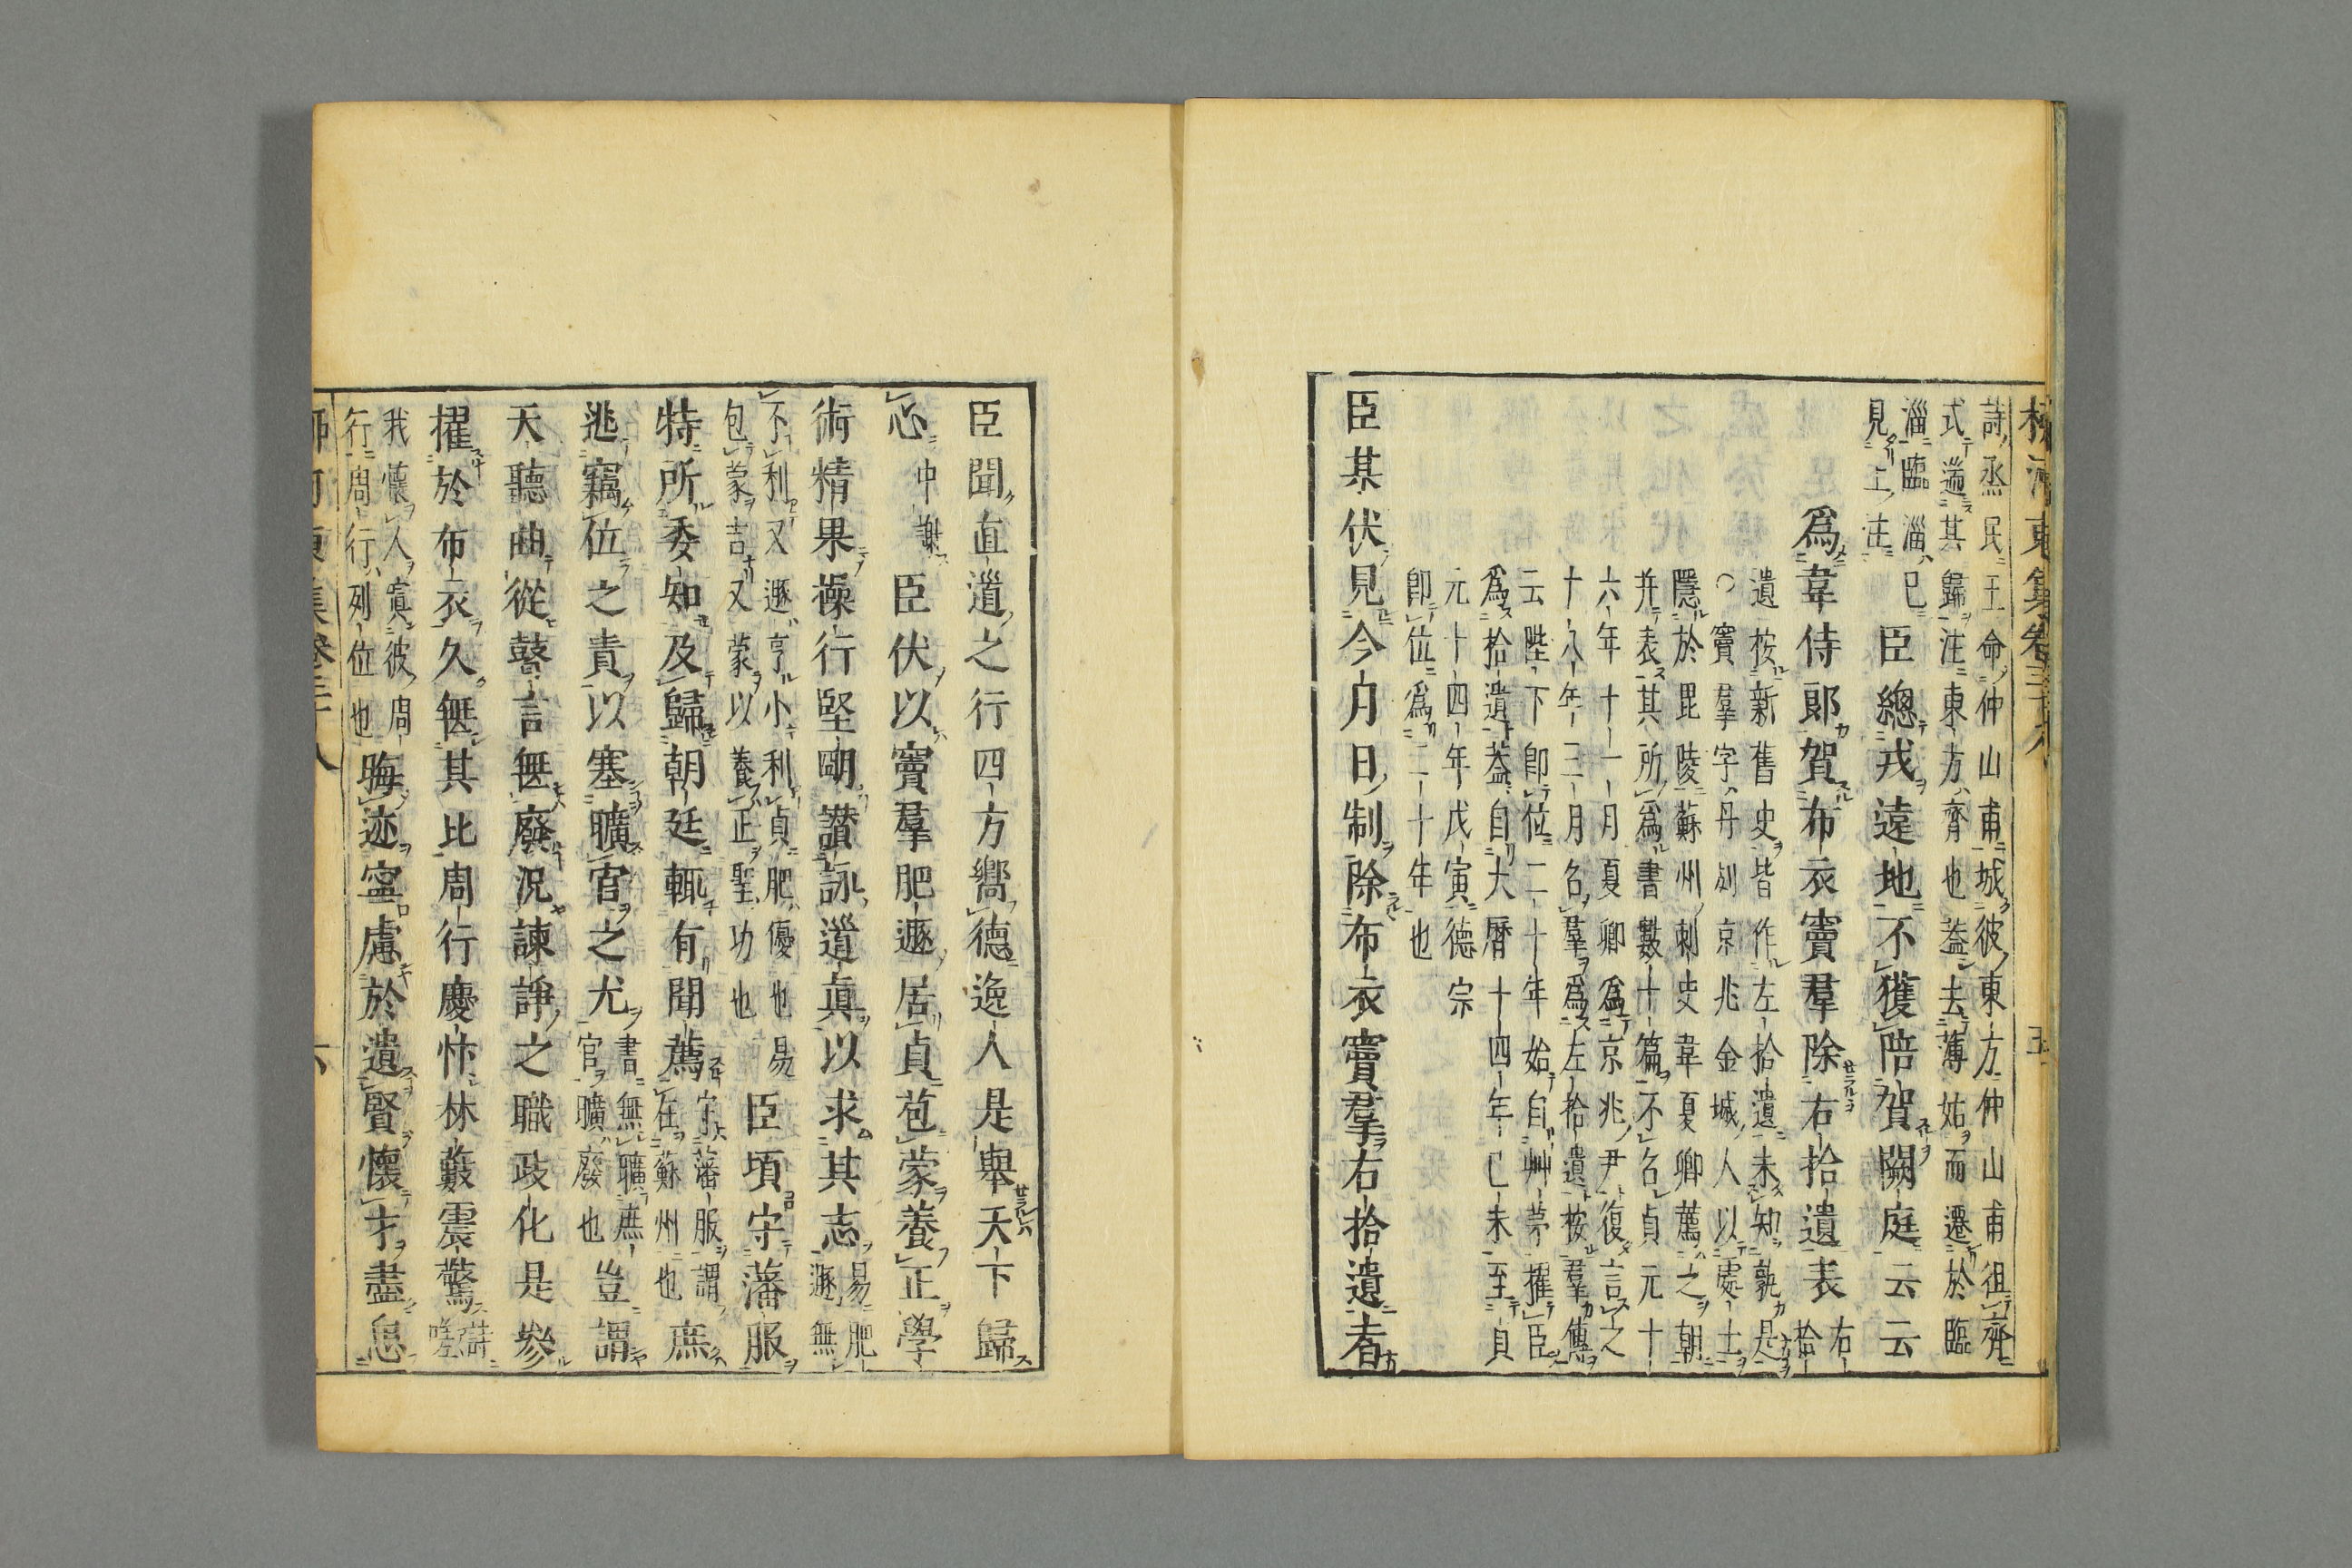 柳河東集卷三十八 五
詩丞民王命仲山甫城彼東方仲山甫徂齊
式遄其歸注東方齊也蓋去薄姑而遷於臨
淄臨淄巳
見上注
臣總戎遠地不獲陪賀闕庭云云
爲韋侍郎賀布衣竇羣除右拾遺表 右拾
遺按新舊史皆作左拾遺未知孰是
○竇羣字丹列京兆金城人以處士
隱於毘陵蘇州刺史韋夏卿薦之朝
并表其所爲書數十篇不召貞元十
六年十一月夏卿爲京兆尹復言之
十八年三月召羣爲左拾遺按羣傳
云陛下即位二十年始自艸茅擢臣
爲拾遺蓋自大曆十四年己未至貞
元十四年戊寅德宗
即位爲二十年也
臣某伏見今月日制除布衣竇羣右拾遺者
臣聞直道之行四方嚮德逸人是舉天下歸
心中謝臣伏以竇羣肥遯居貞苞蒙養正學
術精果操行堅明讃詠道眞以求其志
易肥
遯無
不利又遯亨小利貞肥優也易
包蒙吉又蒙以養正聖功也
臣頃守藩服
特所委知及歸朝廷輒有聞薦
守藩服謂
在蘇州也
庶
逃竊位之責以塞曠官之尤
書無曠庶
官曠廢也
豈謂
天聽曲從瞽言無廢況諫諍之職政化是參
擢於布衣久無其比周行慶忭林藪震驚
詩
嗟
我懷人寘彼周
行周行列位也
晦迹寧慮於遺賢懷才盡思
柳河東集卷三十八 六